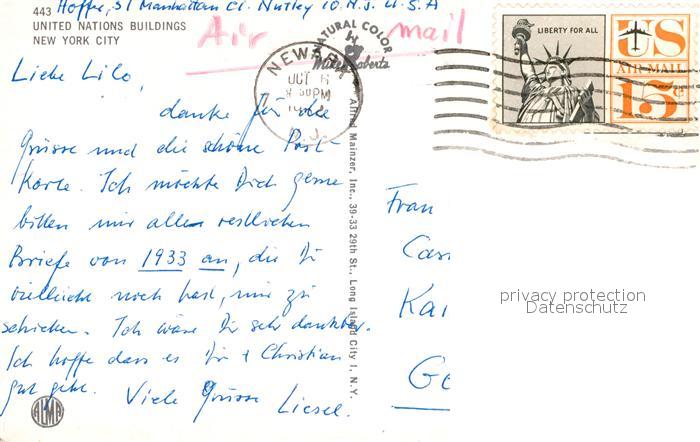 Hoffer, 51 Manhattan Ct. Nutley 10. N.J. U.S.A
443
UNITED NATIONS BUILDINGS
NEW YORK CITY
Air mail
NATURAL COLOR
Mike Roberts
NEWARK
OCT 6
30 PM
N.J.
LIBERTY FOR ALL
US
AIR MAIL
15¢
Liebe Lilo,
danke für die
Grüsse und die schöne Post-
Karte. Ich möchte Dich gerne
bitten mir alle restlichen
Briefe von 1933 an, die Du
vielleicht noch hast, mir zu
schicken. Ich wäre Dir sehr dankbar.
Ich hoffe dass es Dir + Christian
gut geht. Viele Grüsse Liesel.
Alfred Mainzer, Inc., 39-33 29th St., Long Island City 1, N.Y.
ALMA
Frau
Cas
Kai
Ge
privacy protection
Datenschutz